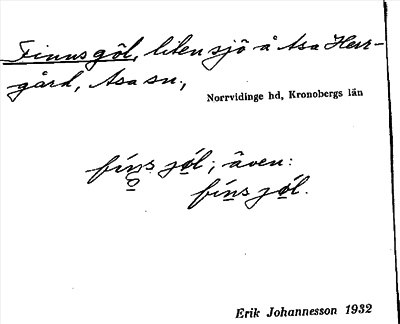 Finnsgöl, liten sjö å Asa Herr-
gård, Asa sn,
Norrvidinge hd, Kronobergs län
fíns jøl; även:
fíns jøl.
Erik Johannesson 1932